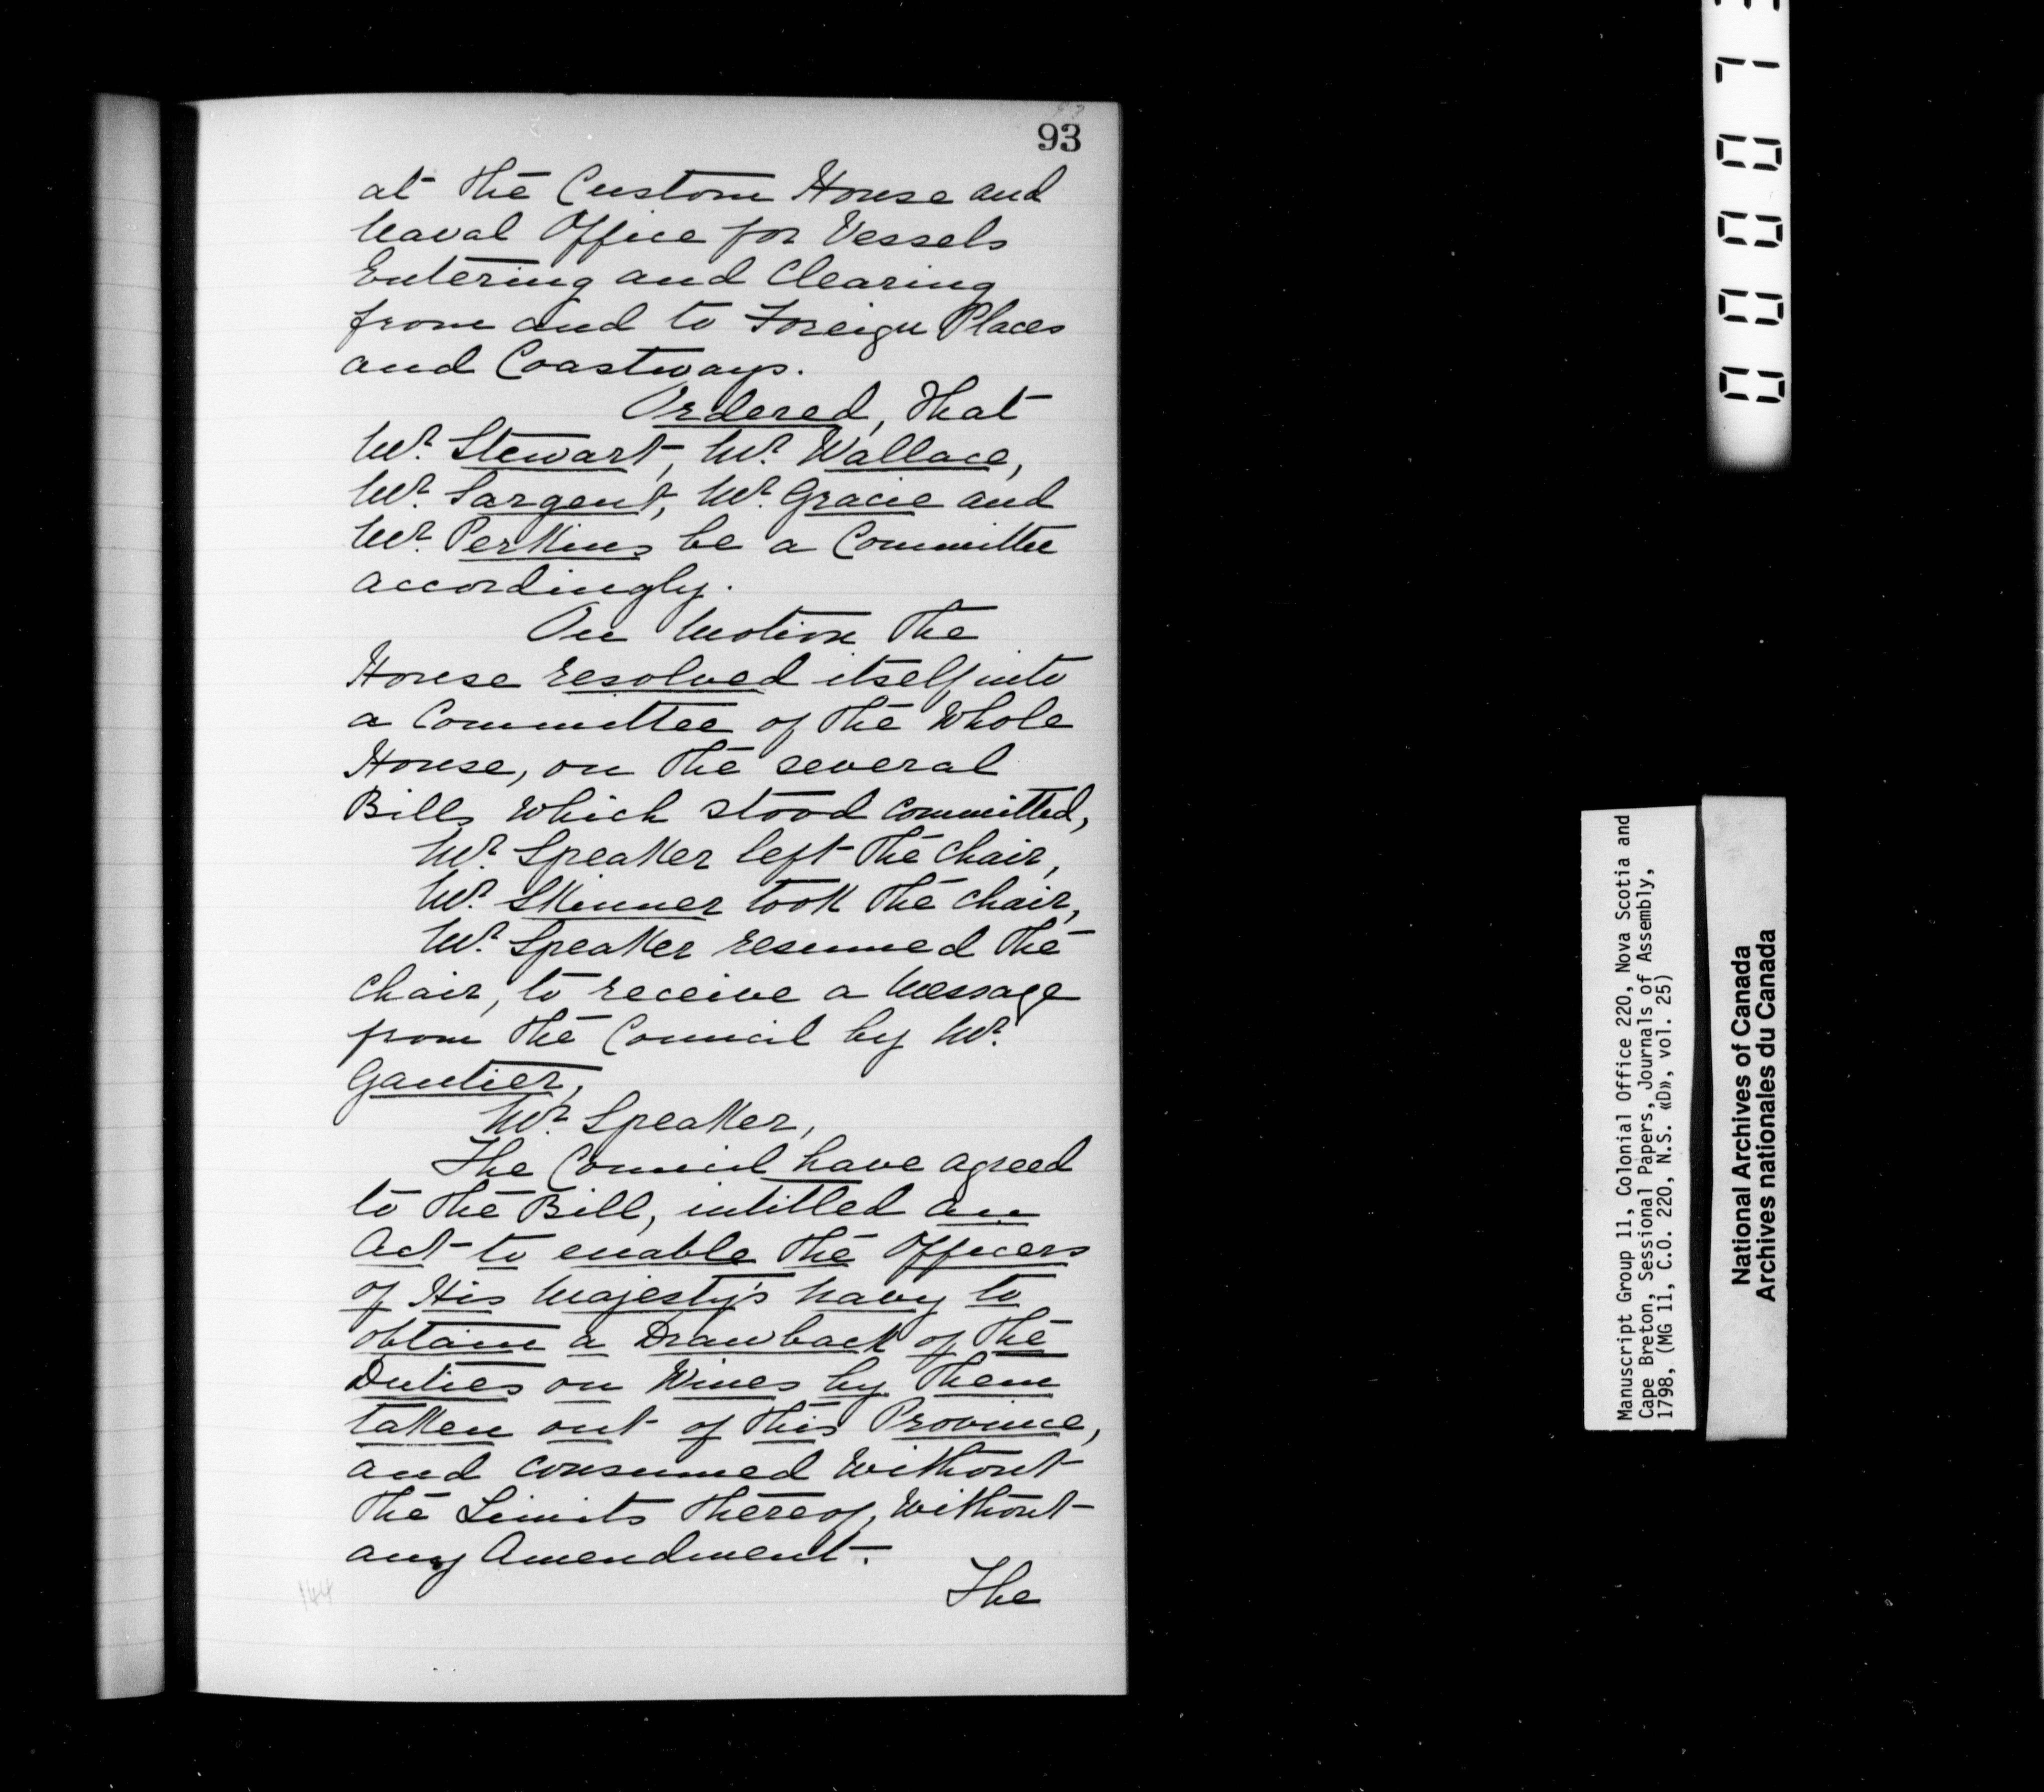 93
at the Custom House and
Naval Office for Vessels
Entering and Clearing
from and to Foreign Places
and Coastways.
Ordered, that
Mr. Stewart, Mr. Wallace,
Mr. Sargent, Mr. Gracie and
Mr. Perkins be a Committee
accordingly.
On Motion the
House resolved itself into
a Committee of the Whole
House, on the several
Bills which stood committed,
Mr. Speaker left the Chair,
Mr. Skinner took the Chair,
Mr. Speaker resumed the
Chair, to receive a Message
from the Council by Mr.
Gautier,
Mr. Speaker,
The Council have agreed
to the Bill, intitled an
Act to enable the Officers
of His Majesty's Navy to
obtain a Drawback of the
Duties on Wines by them
taken out of this Province,
and consumed Without
the Limits thereof, Without
any Amendment.
The
144
Manuscript Group 11, Colonial Office 220, Nova Scotia and
Cape Breton, Sessional Papers, Journals of Assembly,
1798, (MG 11, C.O. 220, N.S. «D», vol. 25)
National Archives of Canada
Archives nationales du Canada